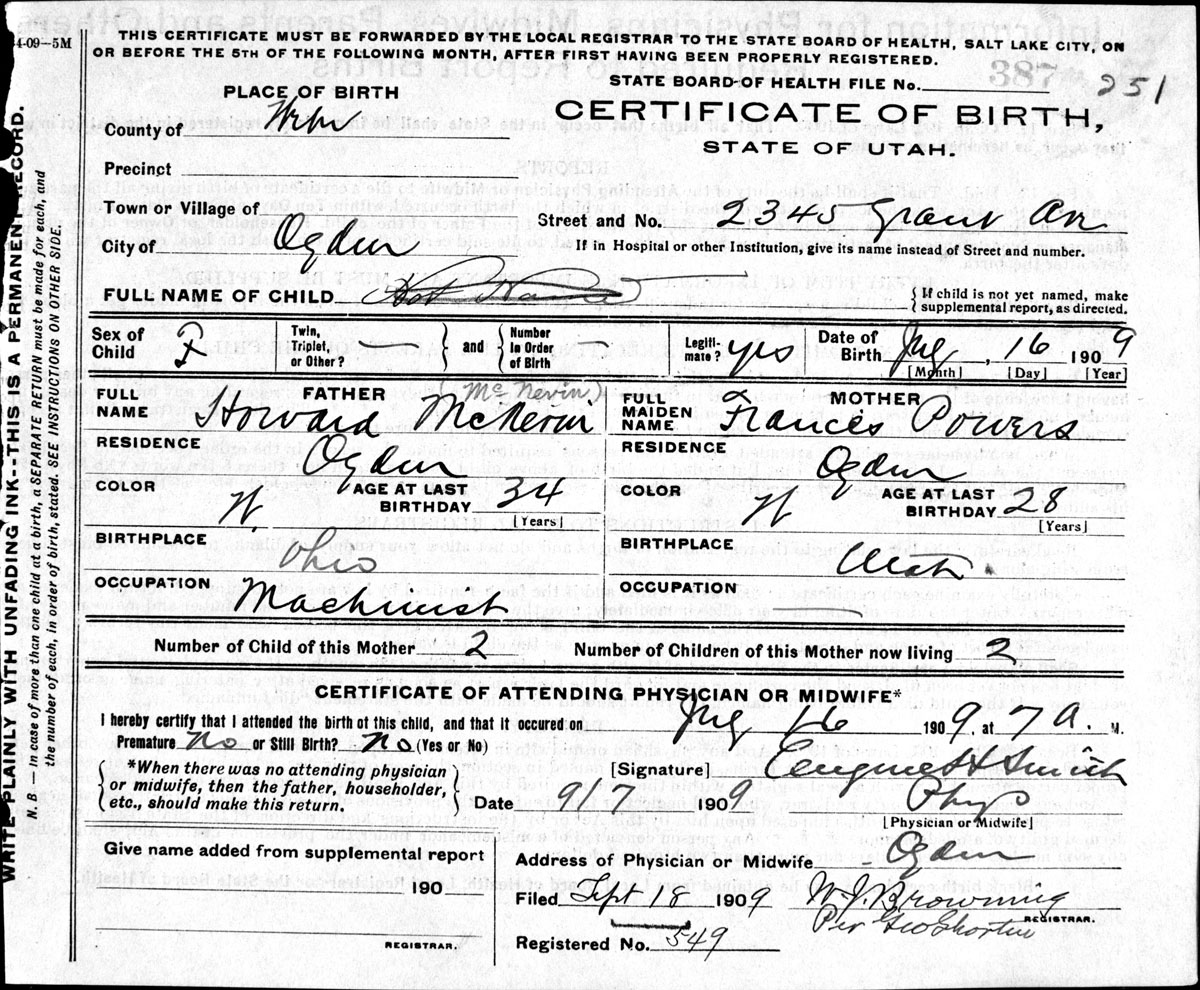 4-09—5M
THIS CERTIFICATE MUST BE FORWARDED BY THE LOCAL REGISTRAR TO THE STATE BOARD OF HEALTH, SALT LAKE CITY, ON
OR BEFORE THE 5TH OF THE FOLLOWING MONTH, AFTER FIRST HAVING BEEN PROPERLY REGISTERED.
387
STATE BOARD OF HEALTH FILE No. 251
PLACE OF BIRTH
CERTIFICATE OF BIRTH,
STATE OF UTAH.
County of
Precinct
Town or Village of
Street and No. 2345 Grant Av
City of Ogden
If in Hospital or other Institution, give its name instead of Street and number.
FULL NAME OF CHILD
{ If child is not yet named, make
supplemental report, as directed.
Sex of Child F
Twin, Triplet, or Other? } and { Number in Order of Birth
Legiti-mate? yes
Date of Birth , 16 1909
[Month] [Day] [Year]
FATHER
(McNevin)
FULL NAME Howard McNevin
RESIDENCE Ogden
COLOR W.
AGE AT LAST BIRTHDAY 34
[Years]
BIRTHPLACE Ohio
OCCUPATION Machinist
MOTHER
FULL MAIDEN NAME Frances Powers
RESIDENCE Ogden
COLOR W
AGE AT LAST BIRTHDAY 28
[Years]
BIRTHPLACE Utah
OCCUPATION
Number of Child of this Mother 2
Number of Children of this Mother now living 2
CERTIFICATE OF ATTENDING PHYSICIAN OR MIDWIFE*
I hereby certify that I attended the birth of this child, and that it occured on 16 1909, at 7 a. M.
Premature No or Still Birth? No (Yes or No)
{ *When there was no attending physician
or midwife, then the father, householder,
etc., should make this return. }
[Signature] H Smith
Date 9-7 1909 Phys
[Physician or Midwife]
Give name added from supplemental report
190
REGISTRAR.
Address of Physician or Midwife Ogden
Filed Sept 18 1909 W. J. Browning
REGISTRAR.
Per Geo Shorten
Registered No. 549
WRITE PLAINLY WITH UNFADING INK--THIS IS A PERMANENT RECORD.
N. B.—In case of more than one child at a birth, a SEPARATE RETURN must be made for each, and
the number of each, in order of birth, stated. SEE INSTRUCTIONS ON OTHER SIDE.